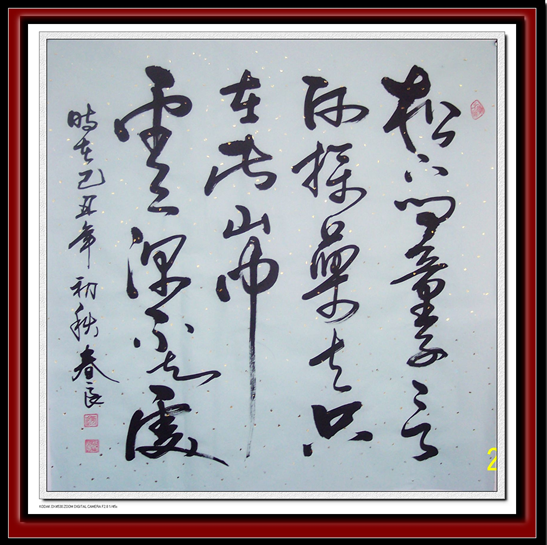 松下問童子言
師採藥去只
在此山中
雲深不知處
時在己丑年初秋春良
2
KODAK DX4530 ZOOM DIGITAL CAMERA F2.8 1/45s